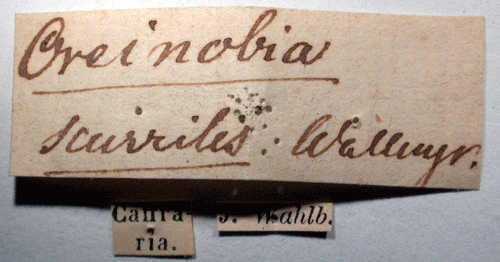 Oreinobia
scurrilis: Wallengr.
Caffra-
ria.
J. Wahlb.